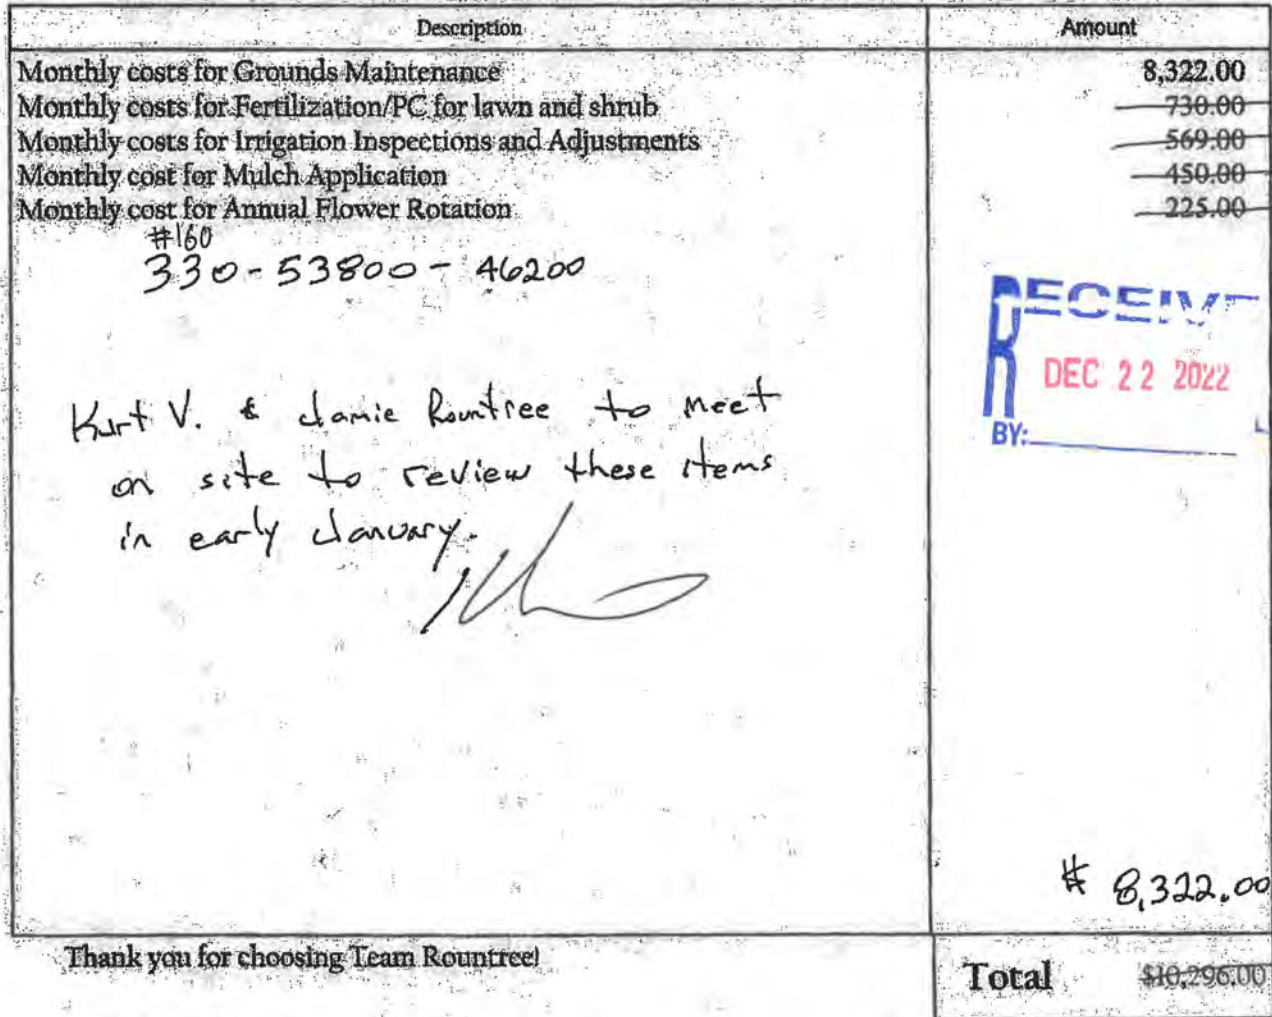 Description Amount
Monthly costs for Grounds Maintenance 8,322.00
Monthly costs for Fertilization/PC for lawn and shrub 730.00
Monthly costs for Irrigation Inspections and Adjustments 569.00
Monthly cost for Mulch Application 450.00
Monthly cost for Annual Flower Rotation 225.00
#160
330-53800-46200
RECEIVE
DEC 22 2022
BY:
Kurt V. & Jamie Rountree to meet
on site to review these items
in early January.
$ 8,322.00
Thank you for choosing Team Rountree!
Total $10,296.00